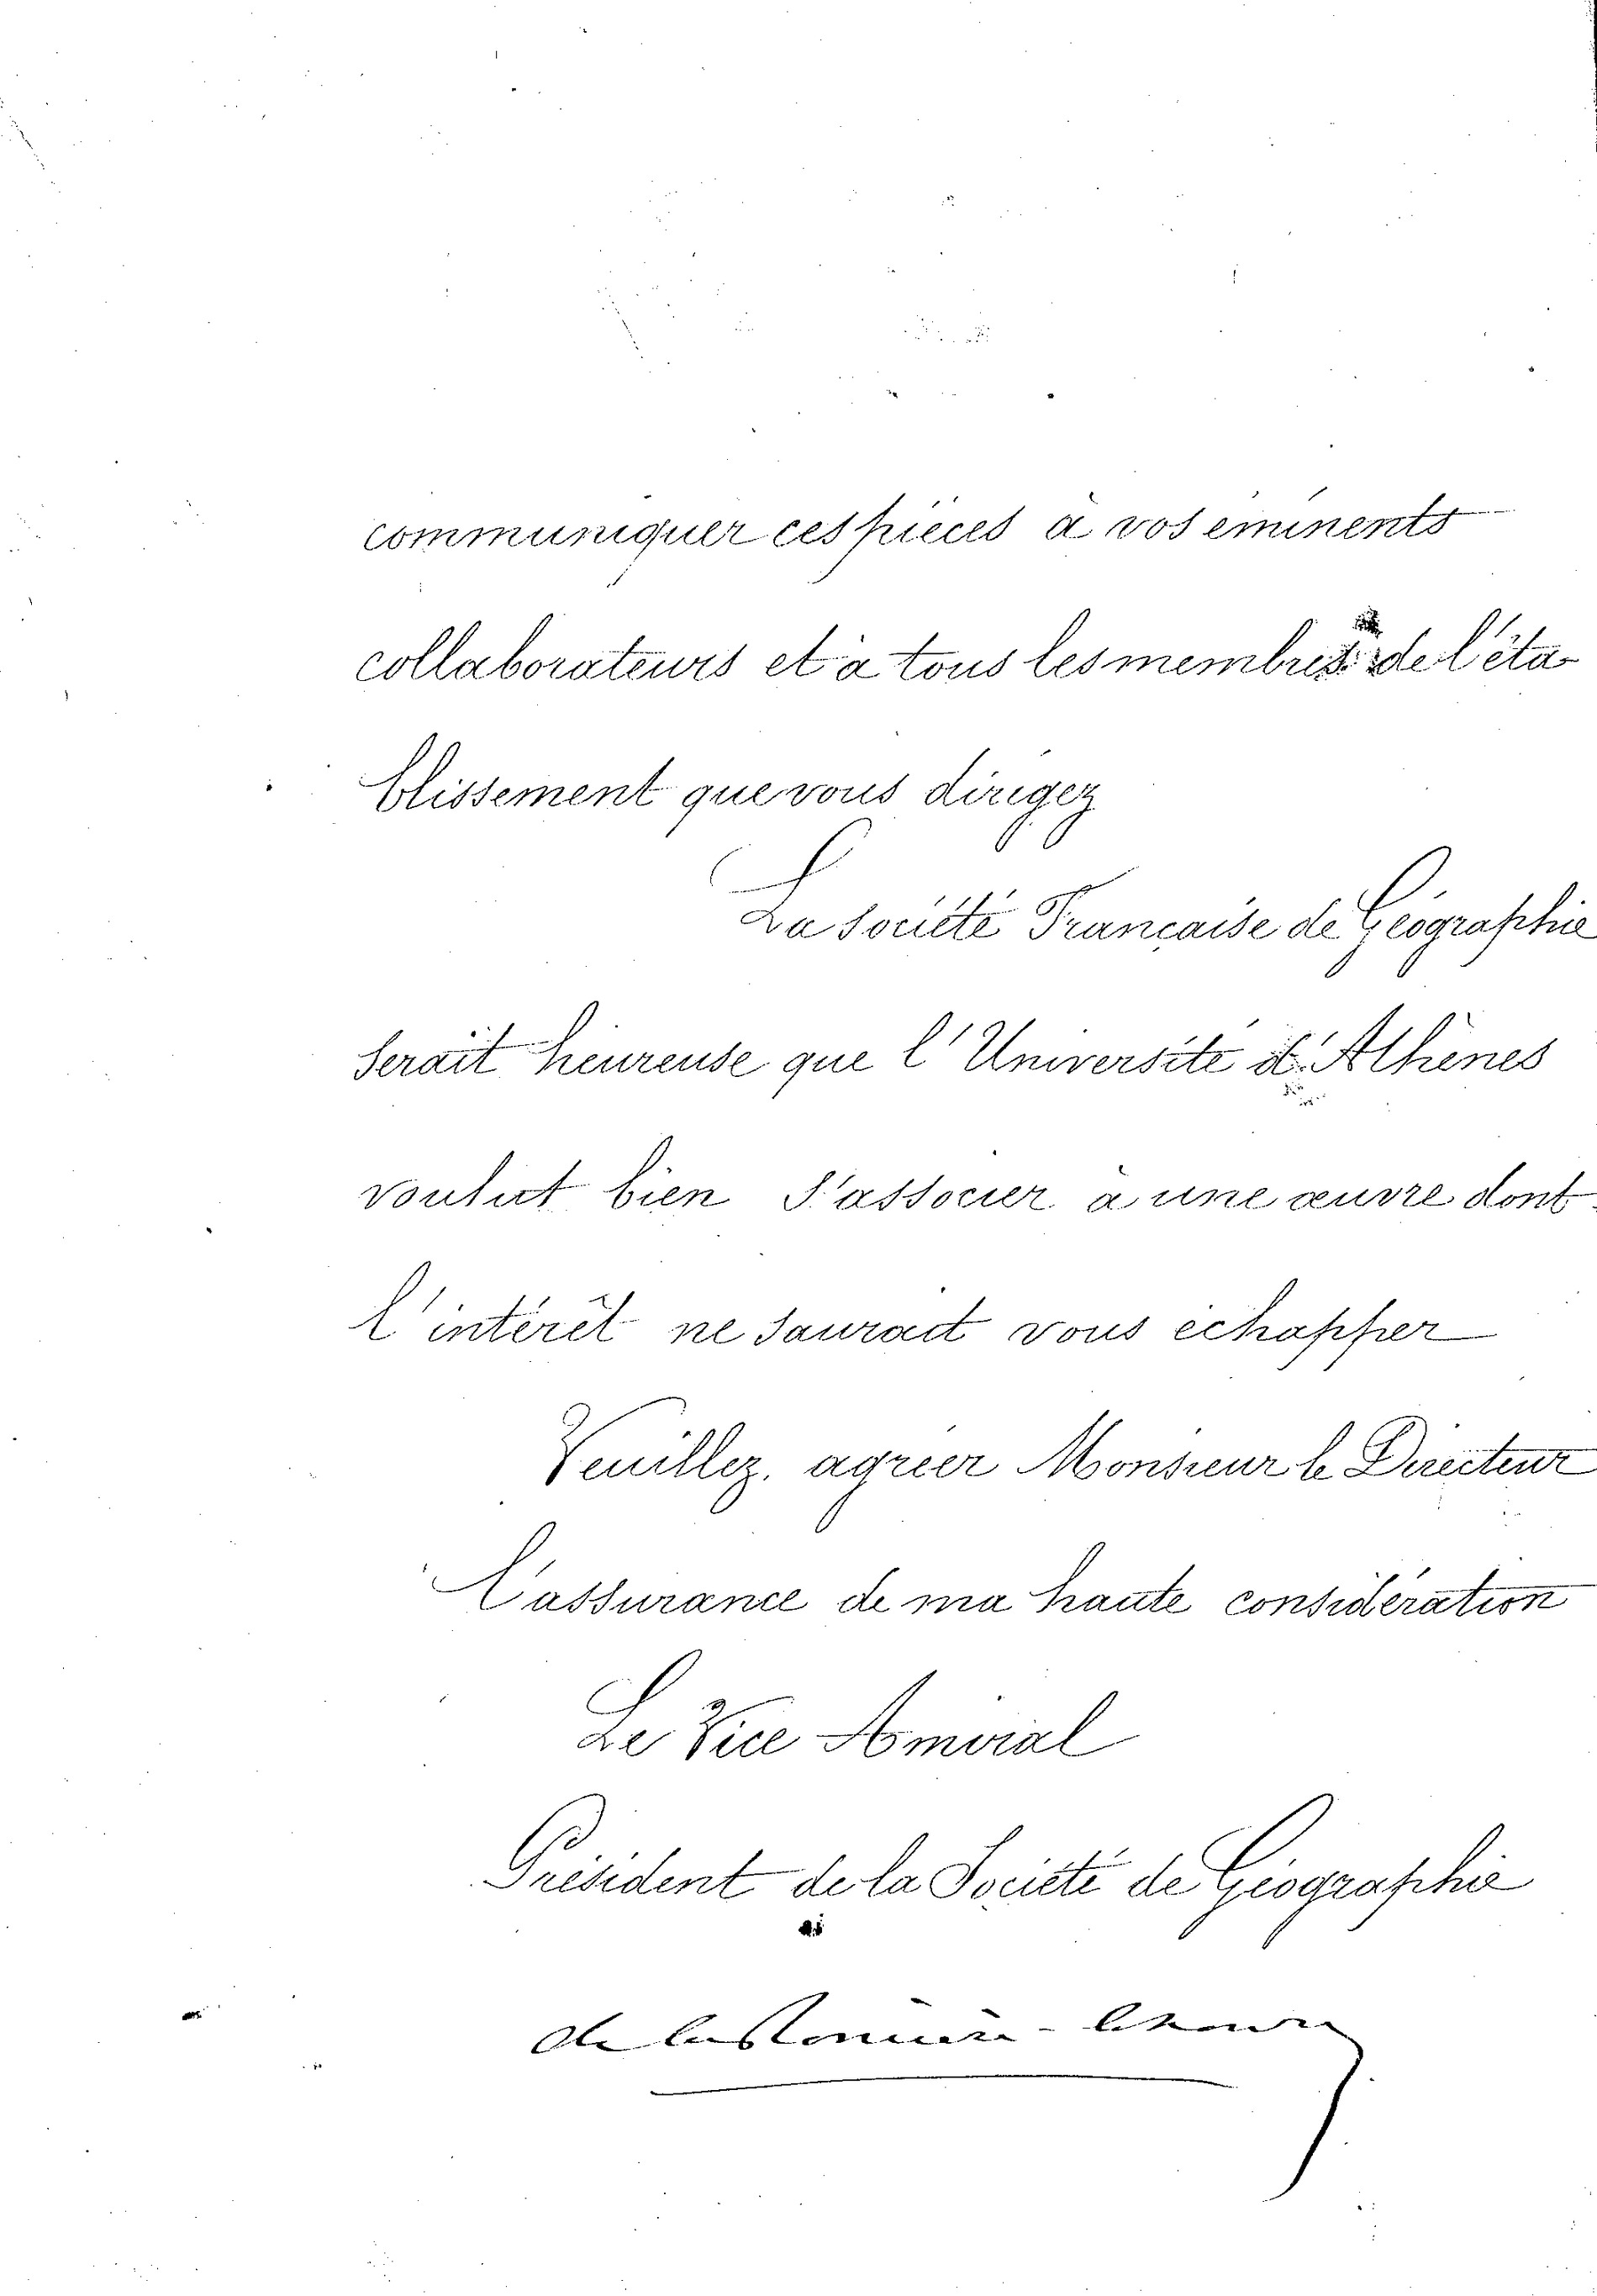 communiquer ces pièces à vos éminents
collaborateurs et à tous les membres de l'éta-
blissement que vous dirigez
La Société Française de Géographie
serait heureuse que l'Université d'Athènes
voulut bien s'associer à une œuvre dont
l'intérêt ne saurait vous échapper
Veuillez agréer Monsieur le Directeur
l'assurance de ma haute considération
Le Vice Amiral
Président de la Société de Géographie
de